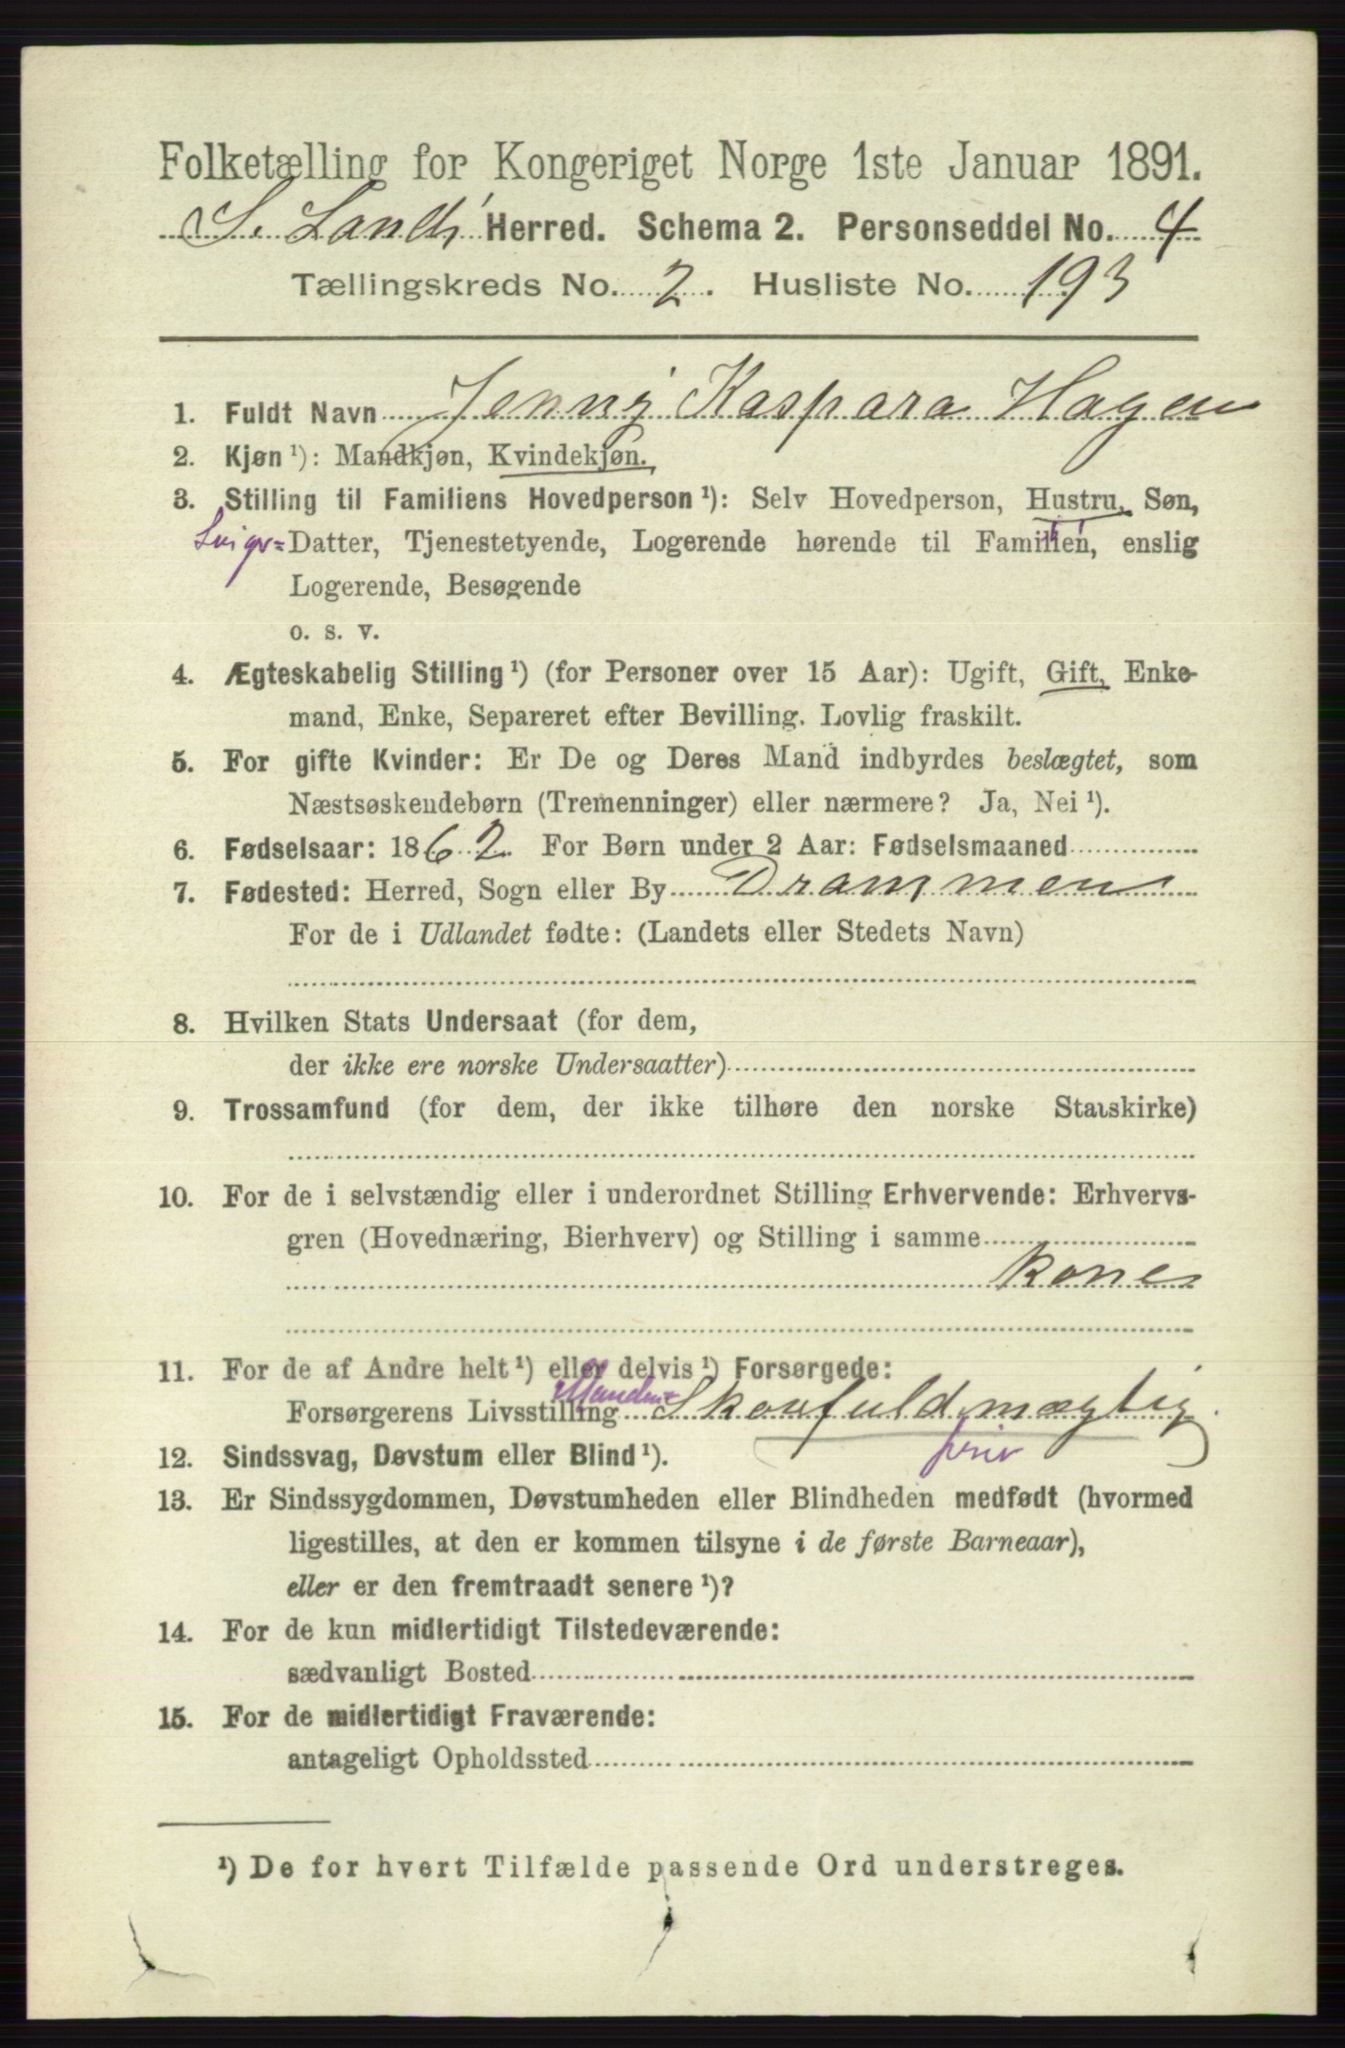 Folketælling for Kongeriget Norge 1ste Januar 1891.
S. Land Herred. Schema 2. Personseddel No. 4
Tællingskreds No. 2. Husliste No. 193
1. Fuldt Navn Jenny Kaspara Hagen
2. Kjøn ¹): Mandkjøn, Kvindekjøn.
3. Stilling til Familiens Hovedperson ¹): Selv Hovedperson, Hustru, Søn,
Sviger= Datter, Tjenestetyende, Logerende hørende til Familien, enslig
Logerende, Besøgende
o. s. v.
4. Ægteskabelig Stilling ¹) (for Personer over 15 Aar): Ugift, Gift, Enke-
mand, Enke, Separeret efter Bevilling. Lovlig fraskilt.
5. For gifte Kvinder: Er De og Deres Mand indbyrdes beslægtet, som
Næstsøskendebørn (Tremenninger) eller nærmere? Ja, Nei ¹).
6. Fødselsaar: 1862 For Børn under 2 Aar: Fødselsmaaned
7. Fødested: Herred, Sogn eller By Drammen
For de i Udlandet fødte: (Landets eller Stedets Navn)
8. Hvilken Stats Undersaat (for dem,
der ikke ere norske Undersaatter)
9. Trossamfund (for dem, der ikke tilhøre den norske Statskirke)
10. For de i selvstændig eller i underordnet Stilling Erhvervende: Erhvervs-
gren (Hovednæring, Bierhverv) og Stilling i samme
Kone
11. For de af Andre helt ¹) eller delvis ¹) Forsørgede:
Forsørgerens Livsstilling Manden= Skovfuldmægtig
priv
12. Sindssvag, Døvstum eller Blind ¹).
13. Er Sindssygdommen, Døvstumheden eller Blindheden medfødt (hvormed
ligestilles, at den er kommen tilsyne i de første Barneaar),
eller er den fremtraadt senere ¹)?
14. For de kun midlertidigt Tilstedeværende:
sædvanligt Bosted
15. For de midlertidigt Fraværende:
antageligt Opholdssted
¹) De for hvert Tilfælde passende Ord understreges.